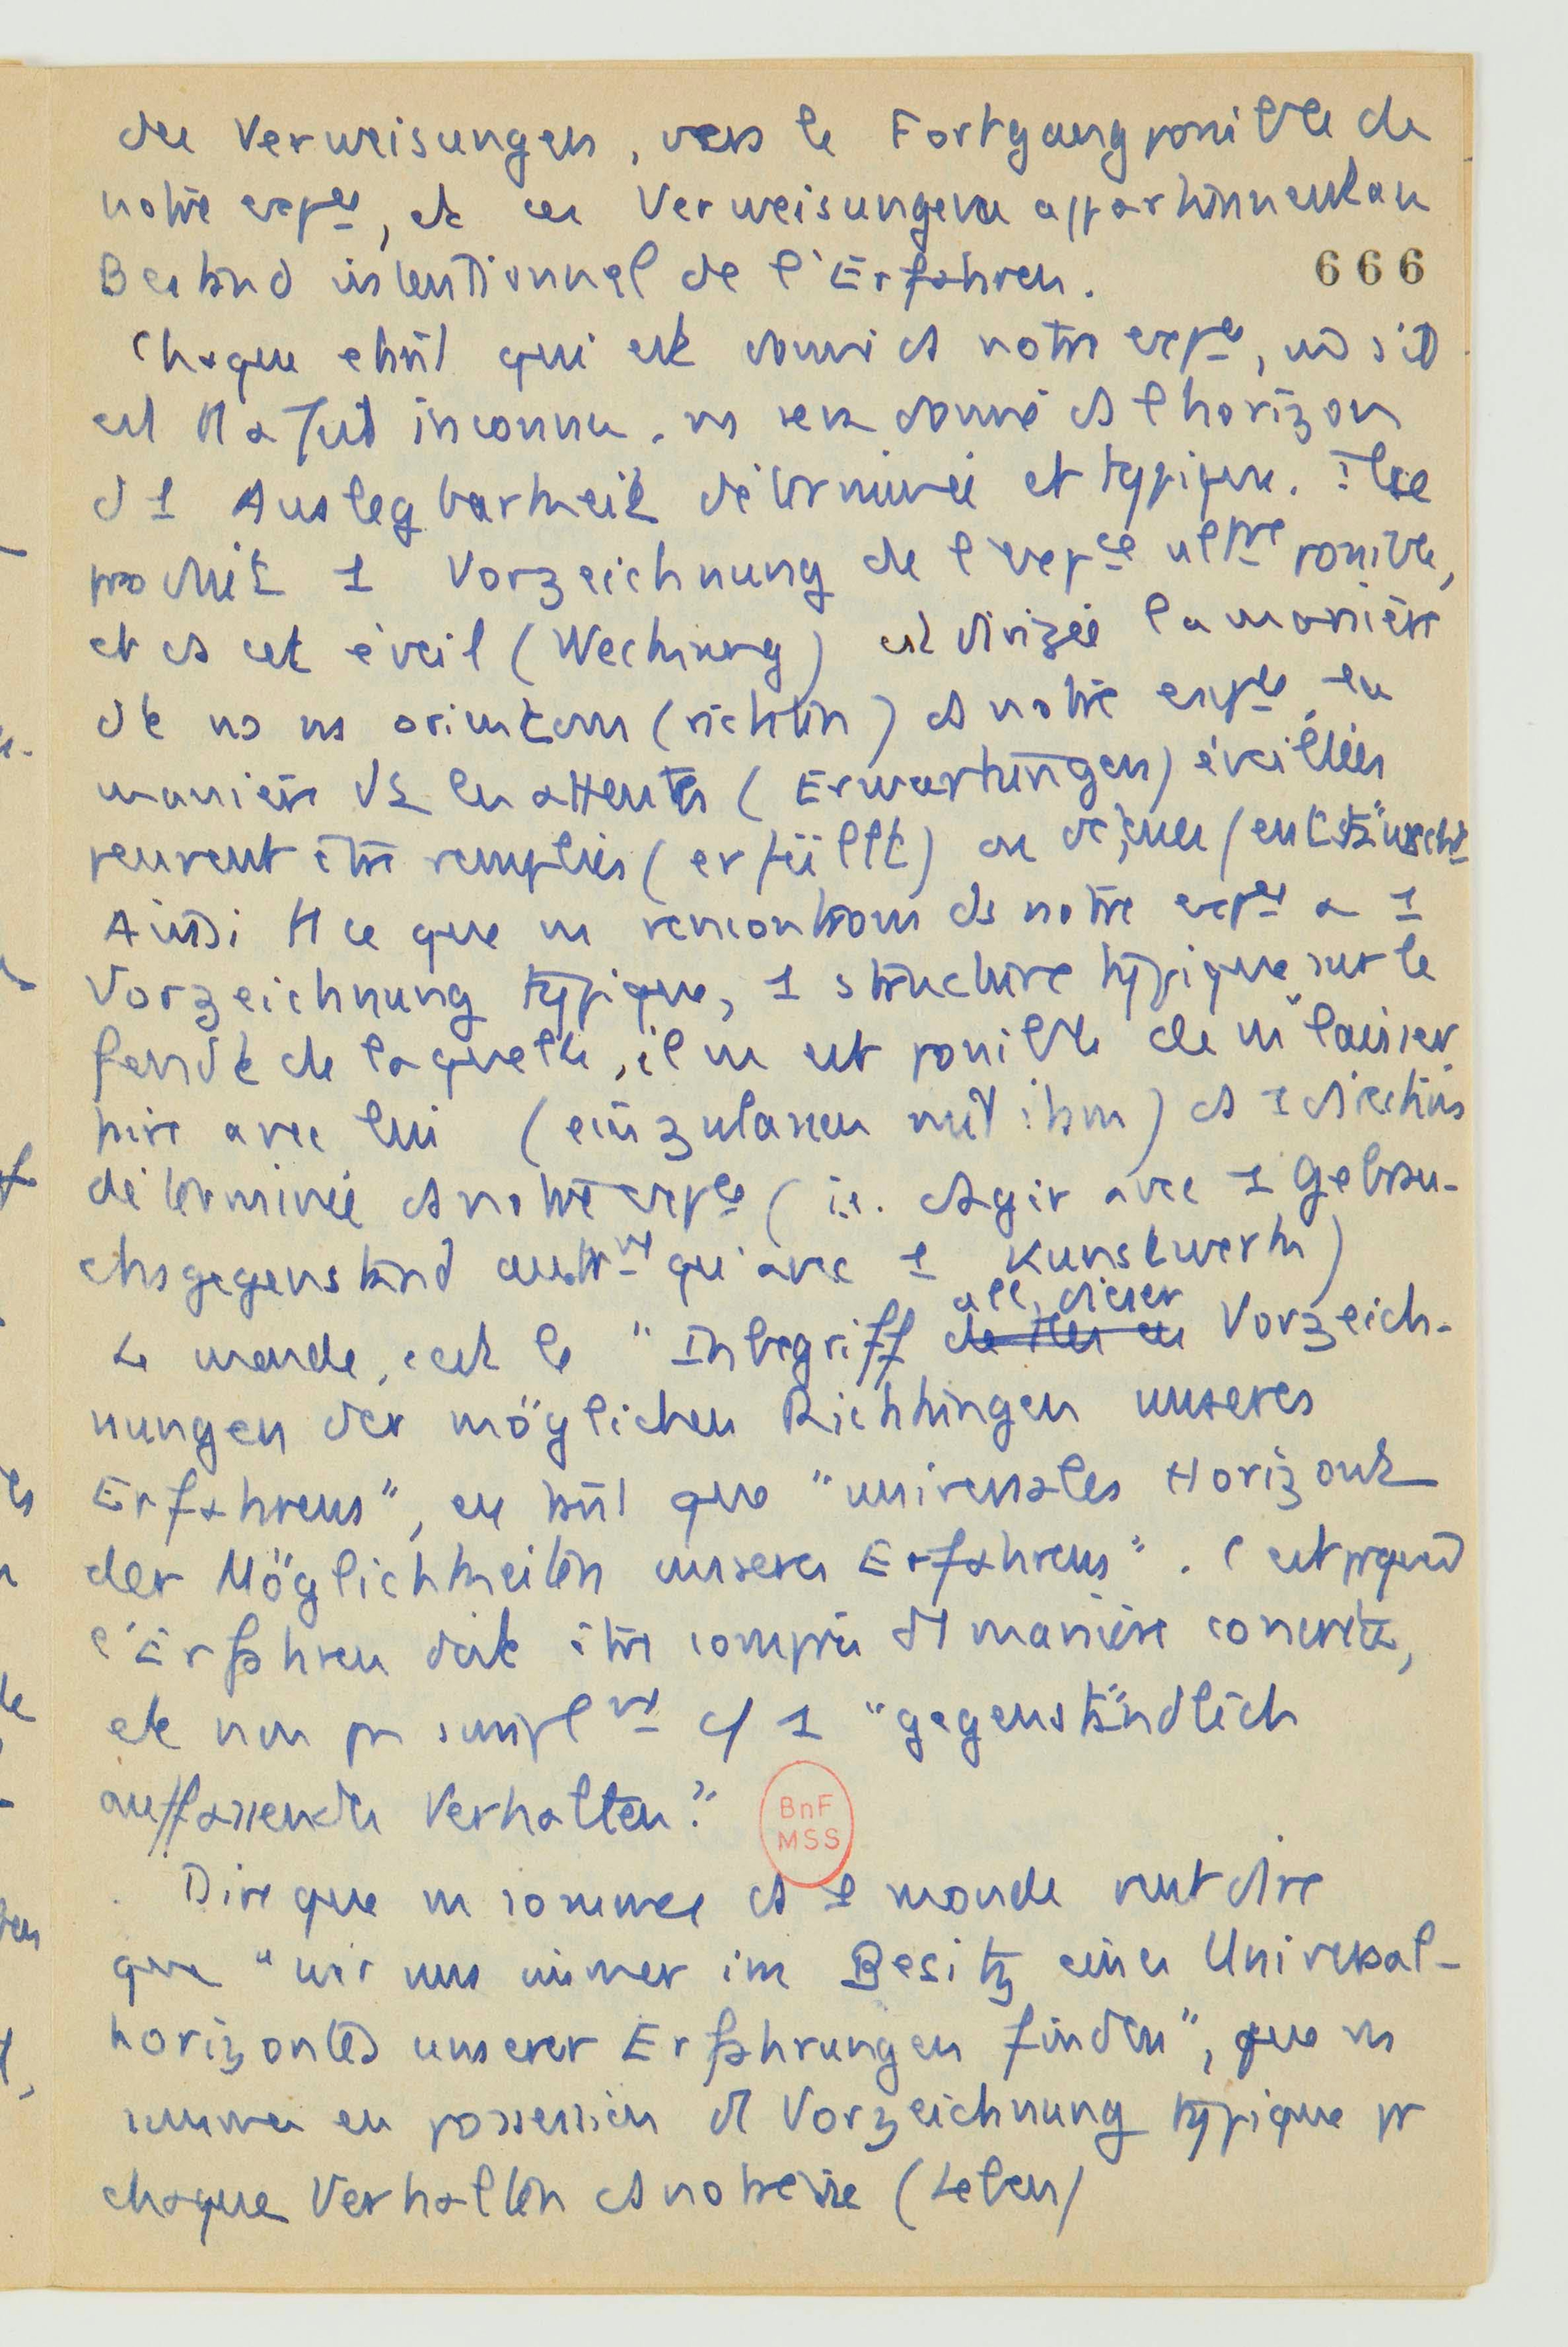 des Verweisungen, vers le Fortgang possible de
notre expce, et ces Verweisungen appartiennent au
Bestand intentionnel de l'Erfahren.
666
Chaque étant qui est donné ds notre expce, 
est inconnu. ns est donné ds l'horizon
d'1 Auslegbarkeit déterminée et typique. Il se
produit 1 Vorzeichnung de l'expce ultre possible,
et ds cet éveil (Weckung) est dirigée la manière
dt ns ns orientons (richten) ds notre expce, la
manière dt les attentes (Erwartungen) éveillées
peuvent être remplies (erfüllt) ou déçues (enttäuscht
Ainsi tt ce que ns rencontrons ds notre expce a 1
Vorzeichnung typique, 1 structure typique, sur le
fond de laquelle, il ns est possible de ns "laisser
faire avec lui (einzulassen mit ihm) ds 1 direction
déterminée ds notre expce (i.e. d'agir avec 1 Gebrau-
chsgegenstand autrmt qu'avec 1 Kunstwerk)
all, dieser
Le monde, c'est le "Inbegriff Vorzeich-
nungen der möglichen Richtungen unseres
Erfahrens", en tant que "universales Horizont
der Möglichkeiten unseres Erfahrens". C'est pquoi
l'Erfahren doit être compris d'1 manière concrète,
et non pas simplmt c/ 1 "gegenständlich
auffassendes Verhalten."
BnF
MSS
Dire que ns sommes ds 1 monde veut dire
que "wir uns immer im Besitz eines Universal-
horizontes unserer Erfahrungen finden", que ns
sommes en possession d'1 Vorzeichnung typique pr
chaque Verhalten ds notre vie (Leben)